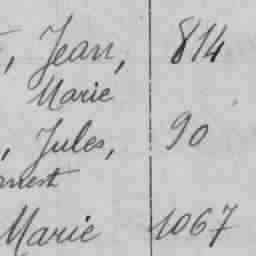 , Jean, 814
Marie
, Jules, 90
Marie 1067